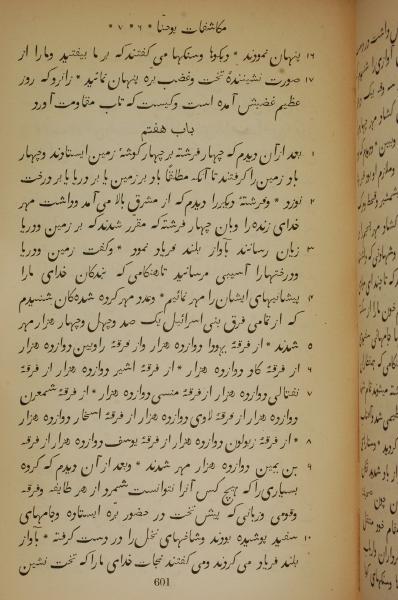 مکاشفات یوحنا * ۶ * ۷ *
۱۶ پنهان نمودند * وبکوها وسنکها می گفتند که بر ما بیفتید ومارا از
۱۷ صورت نشینندۀ تخت وغضب بره پنهان نمائید * زانرو که روز
عظیم غضبش آمده است وکیست که تاب مقاومت آورد
باب هفتم
۱ بعد از آن دیدم که چهار فرشته بر چهار کوشۀ زمین ایستادند وچهار
باد زمین را کرفتند تا آنکه مطلقا باد بر زمین یا بر دریا یا بر درخت
۲ نوزد * وفرشتۀ دیکر را دیدم که از مشرق بالا می آمد وداشت مهر
خدای زنده را وبان چهار فرشته که مقرر شدند که بر زمین ودریا
۳ زیان رسانند بآواز بلند فریاد نمود * وکفت زمین ودریا
ودرختهارا آسیبی مرسانید تا هنکامی که بندکان خدای مارا
۴ پیشانیهای ایشان را مهر نمائیم * وعدد مهر کرده شدهکان شنیدم
که از تمامی فرق بنی اسرائیل یک صد وچهل وچهار هزار مهر
۵ شدند * از فرقۀ یهودا دوازده هزار واز فرقۀ راوبین دوازده هزار
۶ از فرقۀ کاد دوازده هزار * از فرقۀ اشیر دوازده هزار از فرقۀ
۷ نفتالی دوازده هزار از فرقۀ منسی دوازده هزار * از فرقۀ شمعون
دوازده هزار از فرقۀ لاوی دوازده هزار از فرقۀ اسخار دوازده هزار
۸ * از فرقۀ زبولون دوازده هزار از فرقۀ یوسف دوازده هزار از فرقه
۹ بن یمین دوازده هزار مهر شدند * وبعد از آن دیدم که کروه
بسیاری را که هیچ کس آنرا نتوانست شمرد از هر طایفه وفرقه
وقومی وزبانی که پیش تخت در حضور بره ایستاده وجامهای
۱۰ سفید پوشیده بودند وشاخهای نخل را در دست کرفته * بآواز
بلند فریاد می کردند ومی کفتند نجات خدای مارا که تخت نشین
601